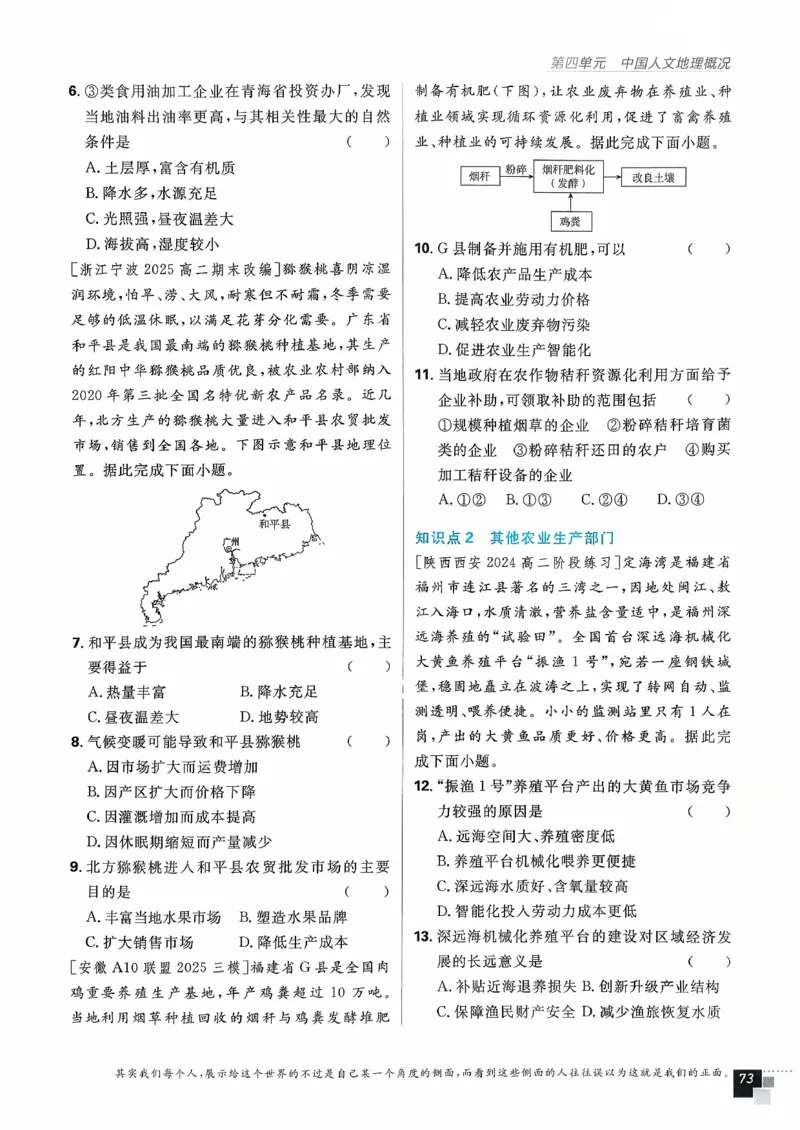 第四单元 中国人文地理概况
6. ③类食用油加工企业在青海省投资办厂,发现
当地油料出油率更高,与其相关性最大的自然
条件是 ( )
A. 土层厚,富含有机质
B. 降水多,水源充足
C. 光照强,昼夜温差大
D. 海拔高,湿度较小
[浙江宁波 2025 高二期末改编]猕猴桃喜阴凉湿
润环境,怕旱、涝、大风,耐寒但不耐霜,冬季需要
足够的低温休眠,以满足花芽分化需要。广东省
和平县是我国最南端的猕猴桃种植基地,其生产
的红阳中华猕猴桃品质优良,被农业农村部纳入
2020 年第三批全国名特优新农产品名录。近几
年,北方生产的猕猴桃大量进入和平县农贸批发
市场,销售到全国各地。下图示意和平县地理位
置。据此完成下面小题。
和平县
广州
7. 和平县成为我国最南端的猕猴桃种植基地,主
要得益于 ( )
A. 热量丰富 B. 降水充足
C. 昼夜温差大 D. 地势较高
8. 气候变暖可能导致和平县猕猴桃 ( )
A. 因市场扩大而运费增加
B. 因产区扩大而价格下降
C. 因灌溉增加而成本提高
D. 因休眠期缩短而产量减少
9. 北方猕猴桃进入和平县农贸批发市场的主要
目的是 ( )
A. 丰富当地水果市场 B. 塑造水果品牌
C. 扩大销售市场 D. 降低生产成本
[安徽 A10 联盟 2025 三模]福建省 G 县是全国肉
鸡重要养殖生产基地,年产鸡粪超过 10 万吨。
当地利用烟草种植回收的烟秆与鸡粪发酵堆肥
制备有机肥(下图),让农业废弃物在养殖业、种
植业领域实现循环资源化利用,促进了畜禽养殖
业、种植业的可持续发展。据此完成下面小题。
烟秆 粉碎 烟秆肥料化 改良土壤
(发酵)
鸡粪
10. G 县制备并施用有机肥,可以 ( )
A. 降低农产品生产成本
B. 提高农业劳动力价格
C. 减轻农业废弃物污染
D. 促进农业生产智能化
11. 当地政府在农作物秸秆资源化利用方面给予
企业补助,可领取补助的范围包括 ( )
①规模种植烟草的企业 ②粉碎秸秆培育菌
类的企业 ③粉碎秸秆还田的农户 ④购买
加工秸秆设备的企业
A. ①② B. ①③ C. ②④ D. ③④
知识点 2 其他农业生产部门
[陕西西安 2024 高二阶段练习]定海湾是福建省
福州市连江县著名的三湾之一,因地处闽江、敖
江入海口,水质清澈,营养盐含量适中,是福州深
远海养殖的“试验田”。全国首台深远海机械化
大黄鱼养殖平台“振渔 1 号”,宛若一座钢铁城
堡,稳固地矗立在波涛之上,实现了转网自动、监
测透明、喂养便捷。小小的监测站里只有 1 人在
岗,产出的大黄鱼品质更好、价格更高。据此完
成下面小题。
12. “振渔 1 号”养殖平台产出的大黄鱼市场竞争
力较强的原因是 ( )
A. 远海空间大、养殖密度低
B. 养殖平台机械化喂养更便捷
C. 深远海水质好、含氧量较高
D. 智能化投入劳动力成本更低
13. 深远海机械化养殖平台的建设对区域经济发
展的长远意义是 ( )
A. 补贴近海退养损失 B. 创新升级产业结构
C. 保障渔民财产安全 D. 减少渔旅恢复水质
其实我们每个人,展示给这个世界的不过是自己某一个角度的侧面,而看到这些侧面的人往往误以为这就是我们的正面。 73